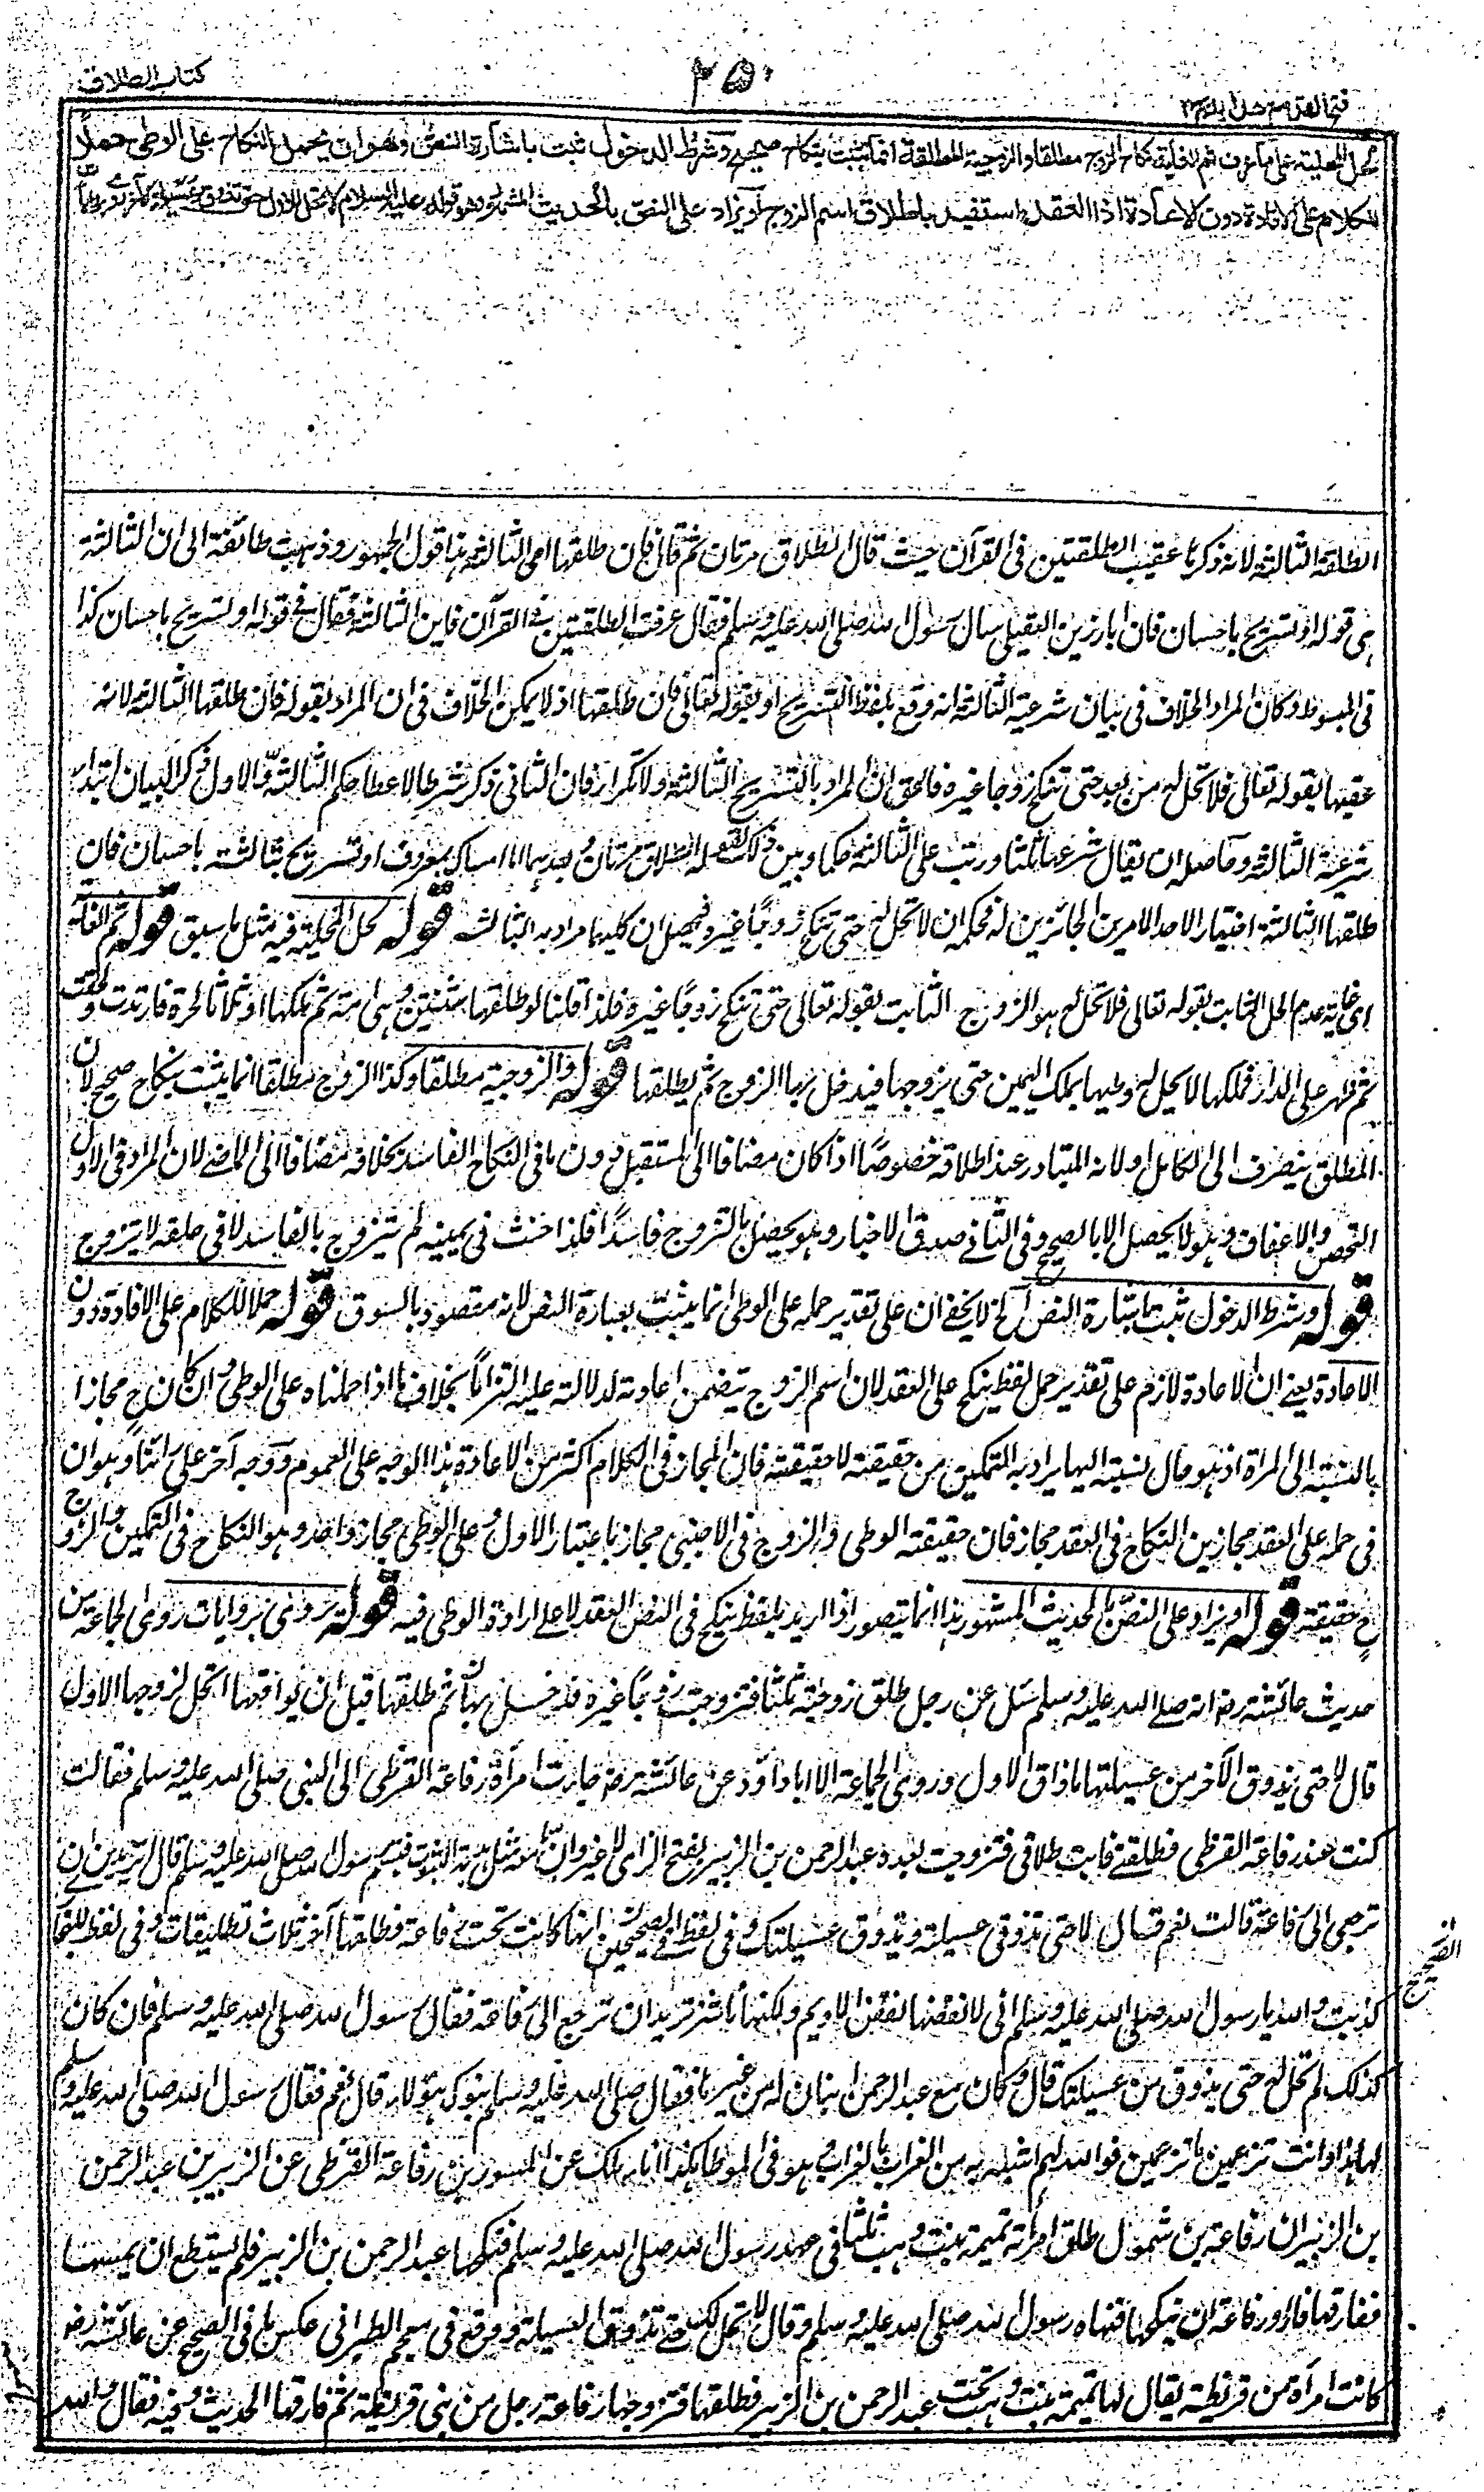 كتاب الطلاق
٢٥٠
فتح القدير مع هداية
محل المحلية على ما عرف ثم الغاية نكاح الزوج مطلقا والزوجية المطلقة انما تثبت بنكاح صحيح وشرط الدخول ثبت باشارة النص وهو ان يحمل النكاح على الوطى حملا
للكلام على الافادة دون الاعادة اذا العقد استفيد باطلاق اسم الزوج او يزاد على النص بالحديث المشهور وهو قوله عليه السلام لا تحل للاول حتى تذوق عسيلة الاخر
الطلقة الثالثة لانه ذكرها عقيب الطلقتين فى القرآن حيث قال الطلاق مرتان ثم قال فان طلقها اى الثالثة هذا قول الجمهور وذهبت طائفة الى ان الثالثة
هى قوله او تسريح باحسان فان ابا رزين العقيلى سال رسول الله صلى الله عليه وسلم فقال عرفت الطلقتين فى القرآن فاين الثالثة فقال فى قوله او تسريح باحسان كذا
فى المبسوط وكان المراد الخلاف فى بيان شرعية الثالثة انه وقع بلفظ التسريح او بقوله تعالى فان طلقها اذ لا يمكن الخلاف فى ان المراد بقوله فان طلقها الثالثة لانه
عقبها بقوله تعالى فلا تحل له من بعد حتى تنكح زوجا غيره فالحق ان المراد بالتسريح الثالثة ولا تكرار فان الثانى ذكر شرطا لاعطاء حكم الثالثة والاول ذكر البيان ابتداء
شرعية الثالثة وحاصله ان يقال شرعها ثلثا ورتب على الثالثة حكما وبين ذلك بقوله الطلاق مرتان وبعدهما اما امساك بمعروف او تسريح بثالثة باحسان فان
طلقها الثالثة اختيارا لاحد الامرين الجائزين له فحكمه ان لا تحل له حتى تنكح زوجا غيره فيحصل ان كليهما مراد به الثالثة قوله محل المحلية فيه مثل ما سبق قوله ثم الغاية
اى غاية عدم الحل الثابت بقوله تعالى فلا تحل له هو الزوج الثابت بقوله تعالى حتى تنكح زوجا غيره فلذا قلنا لو طلقها ثنتين وهى امة ثم ملكها او ثلاثا لحرة فارتدت ولحقت
ثم ظهر على الدار فملكها لا يحل له وطيها بملك اليمين حتى يزوجها فيدخل بها الزوج ثم يطلقها قوله والزوجية مطلقا وكذا الزوج مطلقا انما يثبت بنكاح صحيح لان
المطلق ينصرف الى الكامل ولانه المتبادر عند اطلاقه خصوصا اذا كان مضافا الى المستقبل دون ما فى النكاح الفاسد بخلافه مضافا الى الماضى لان المراد فى الاول
التحصن والاعفاف وهو لا يحصل الا بالصحيح وفى الثانى صدق الاخبار وهو يحصل بالتزوج فاسدا فلذا حنث فى يمينه لم يتزوج بالفاسد لا فى حلفه لا يتزوج
قوله وشرط الدخول ثبت باشارة النص الخ لا يخفى ان على تقدير حمله على الوطى انما يثبت بعبارة النص لانه مقصود بالسوق قوله حملا للكلام على الافادة دون
الاعادة يعنى ان الاعادة لازم على تقدير حمل لفظ ينكح على العقد لان اسم الزوج يتضمن اعادته لدلالته عليه التزاما بخلاف ما اذا حملناه على الوطى وان كان ح مجازا
بالنسبة الى المرأة اذ هو حال نسبته اليها يراد به التمكين من حقيقته لا حقيقته فان المجاز فى الكلام اكثر من الاعادة هذا الوجه على العموم ووجه آخر على رأينا وهو ان
فى حمله على العقد مجازين النكاح فى العقد مجاز فان حقيقته الوطى والزوج فى الاجنبى مجاز باعتبار الاول وعلى الوطى مجاز واحد وهو النكاح فى التمكين والزوج
ح حقيقة قوله او يزاد على النص بالحديث المشهور هذا انما يتصور اذا اريد بلفظ ينكح فى النص العقد لا على ارادة الوطى فيه قوله يروى بروايات روى الجماعة من
حديث عائشة رض انه صلى الله عليه وسلم سئل عن رجل طلق زوجته ثلثا فتزوجت زوجا غيره فدخل بها ثم طلقها قبل ان يواقعها اتحل لزوجها الاول
قال لا حتى يذوق الآخر من عسيلتها ما ذاق الاول وروى الجماعة الا ابا داؤد عن عائشة رض جاءت امرأة رفاعة القرظى الى النبى صلى الله عليه وسلم فقالت
كنت عند رفاعة القرظى فطلقنى فابت طلاقى فتزوجت بعده عبد الرحمن بن الزبير بفتح الزاى لا غير وان ما معه مثل هدبة الثوب فتبسم رسول الله صلى الله عليه وسلم قال تريدين ان
ترجعى الى رفاعة قالت نعم قال لا حتى تذوقى عسيلته ويذوق عسيلتك وفى لفظ فى الصحيحين انها كانت تحت رفاعة فطلقها آخر ثلاث تطليقات وفى لفظ للبخارى
الصحيح
كذبت والله يا رسول الله صلى الله عليه وسلم انى لانفضها نفض الاديم ولكنها ناشز تريد ان ترجع الى رفاعة فقال رسول الله صلى الله عليه وسلم فان كان
كذلك لم تحل له حتى يذوق من عسيلتك قال وكان مع عبد الرحمن ابنان له من غيرها فقال صلى الله عليه وسلم بنوك هؤلاء قال نعم فقال رسول الله صلى الله عليه وسلم
لها هذا وانت تزعمين ما تزعمين فوالله لهم اشبه به من الغراب بالغراب وهو فى الموطا هكذا انا مالك عن المسور بن رفاعة القرظى عن الزبير بن عبد الرحمن
بن الزبير ان رفاعة بن شموال طلق امرأته تميمة بنت وهب ثلثا فى عهد رسول الله صلى الله عليه وسلم فنكحها عبد الرحمن بن الزبير فلم يستطع ان يمسها
ففارقها فاراد رفاعة ان ينكحها فنهاه رسول الله صلى الله عليه وسلم وقال لا تحل لك حتى تذوق العسيلة ووقع فى معجم الطبرانى عكس ما فى الصحيح عن عائشة رض
كانت امرأة من قريظة يقال لها تميمة بنت وهب تحت عبد الرحمن بن الزبير فطلقها فتزوجها رفاعة رجل من بنى قريظة ثم فارقها الحديث وفيه فقال والله